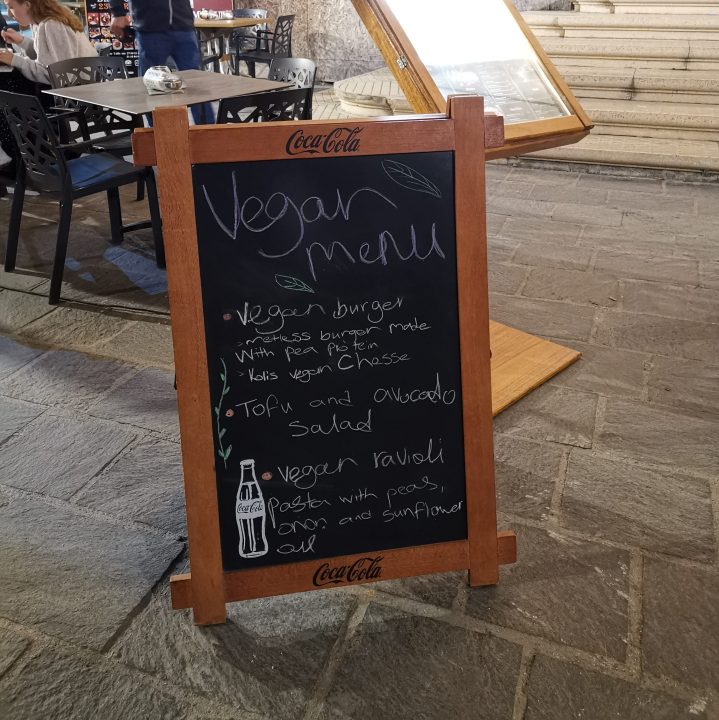 Coca-Cola
Vegan
menu
vegan burger
metless burger made
With pea protein
Kolis vegan Chesse
Tofu and avocado
Salad
vegan ravioli
Coca-Cola
pasta with peas,
onon and sunflower
oil
Coca-Cola